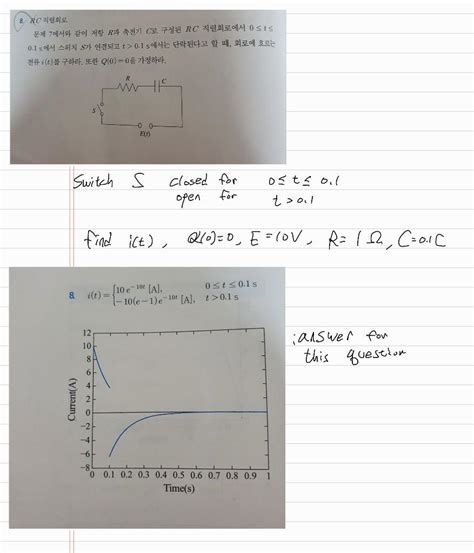 8. RC 직렬회로
문제 7에서와 같이 저항 R과 축전기 C로 구성된 RC 직렬회로에서 0 ≤ t ≤
0.1 s에서 스위치 S가 연결되고 t > 0.1 s에서는 단락된다고 할 때, 회로에 흐르는
전류 i(t)를 구하라. 또한 Q(0) = 0을 가정하라.
R C
S
E(t)
Switch S closed for 0 ≤ t ≤ 0.1
open for t > 0.1
find i(t), Q(0)=0, E=10V, R=1Ω, C=0.1C
8. i(t) = { 10 e^{-10t} [A], 0 ≤ t ≤ 0.1 s
-10(e-1) e^{-10t} [A], t > 0.1 s
: answer for
this question
12
10
8
6
4
2
0
-2
-4
-6
-8
Current(A)
0 0.1 0.2 0.3 0.4 0.5 0.6 0.7 0.8 0.9 1
Time(s)